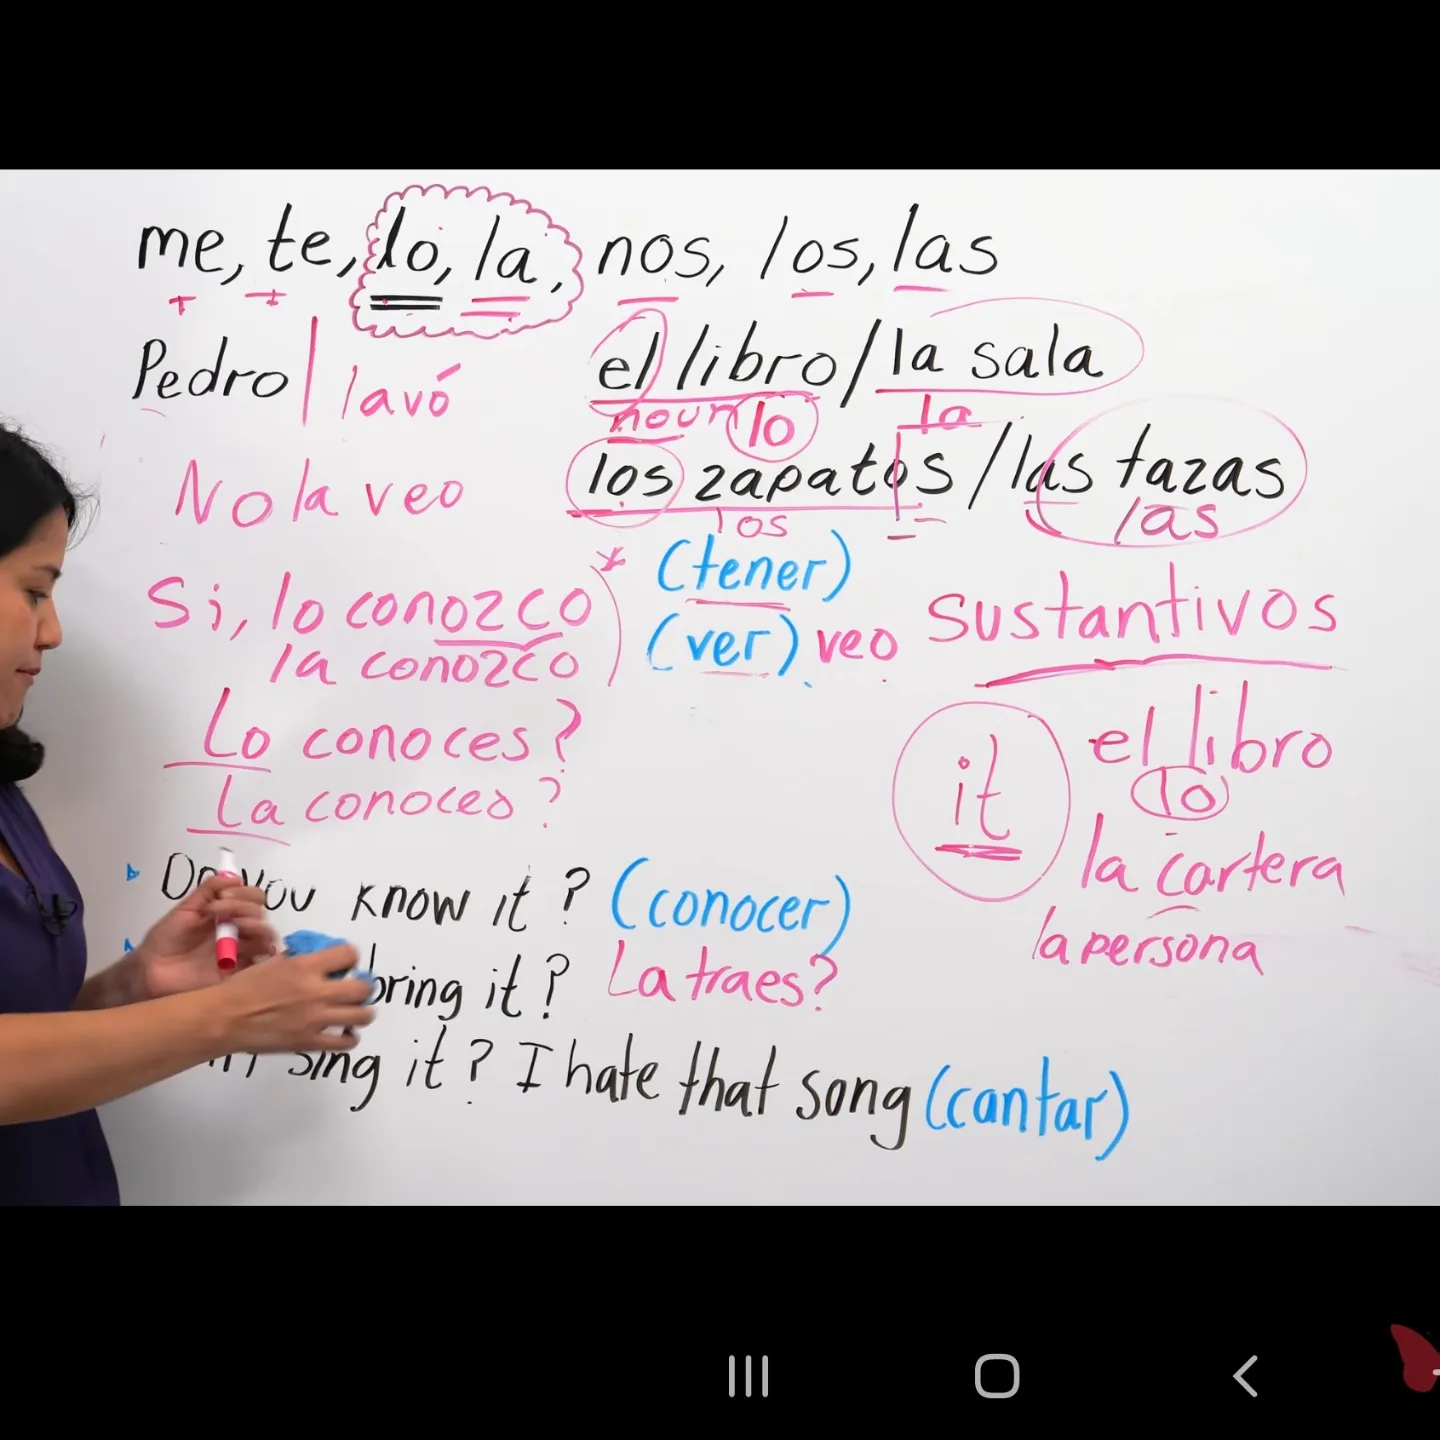 me, te, lo, la, nos, los, las
Pedro | lavó
el libro / la sala
noun lo la
los zapatos / las tazas
los las
No la veo
(tener)
Si, lo conozco
la conozco
(ver) veo
sustantivos
Lo conoces?
La conoces?
it
el libro
lo
la cartera
la persona
Do you know it? (conocer)
bring it? La traes?
sing it? I hate that song (cantar)